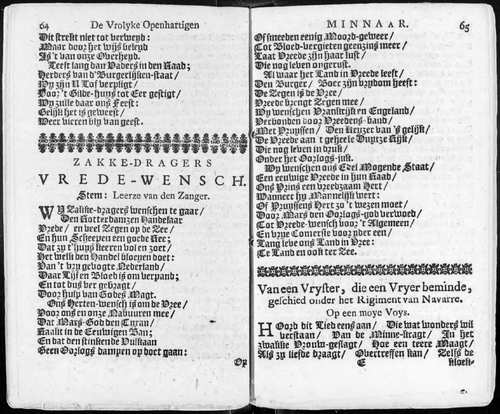 64 De Vrolyke Openhartigen
Dit strekt niet tot verwyd:
Maar door het wijs beleyd
Is't van onze Overheyd.
Leeft lang dan Vaders in den Raad;
Herders van d'Burgerlijken-staat/
Wy zijn U Lof verpligt;
Voor't Gilde-huys tot Eer gestigt/
Wy zulle daar ons Feest;
Gelijk het is geweest/
Weer vieren bly van geest.
ZAKKE-DRAGERS
VREDE-WENSCH.
Stem: Leerze van den Zanger.
WY Zakke-dragers wenschen te gaar/
Den Rotterdamzen Handelaar
Vrede/ en veel Zegen op de Zee/
En hun Scheepen een goede Ree;
Dat zy t'huys keeren vol en zoet/
Het welk den Handel bloeyen doet:
Van 't vry gevogte Nederland/
Daar Lijf en Bloed is om verpand;
En tot dus ver gebragt/
Door hulp van Godes Magt.
Ons Herten-wensch is om de Vree/
Voor ons en onze Nabuuren mee/
Dat Mars-God den Tyran/
Raakt in de Eeuwigen Ban;
En dat den stinkenden Vulkaan
Geen Oorlogs dampen op doet gaan:
Of
MINNAAR. 65
Of smeeden eenig Moord-geweer/
Tot Bloed-vergieten grenzing meer/
Laat Vrede zijn haar lust/
Die nog leven ongerust.
Al waar het Land in Vrede leeft/
Den Burger/ Boer zijn vrydom heeft:
De Zegen is de Vree/
Vrede brengt Zegen mee/
Wy wenschen Vrankrijk en Engeland/
Verbonden door Vredens-band/
Met Pruyssen/ Den Keyzer van 's gelijk/
De Vrede aan 't geheele Duytze Rijk/
Die nog leven in druk/
Onder het Oorlogs-juk.
Wy wenschen ons Edel Mogende Staat/
Een eeuwige Vrede in hun Raad/
Ons Prins een vreedzaam Hert/
Wanneer hy Mannelijk wert;
Of Pruyssens Hert zo 't wezen moet/
Door Mars den Oorlogs-god verwoed/
Tot Vrede-wensch voor 't Algemeen/
En vrye Comertie door yder een/
Lang leve ons Land in Vree:
Te Land en ook ter Zee.
Van een Vryster, die een Vryer beminde,
geschied onder het Rigiment van Navarre.
Op een moye Voys.
HOord dit Lied eens aan/ Die wat wonders wil
verstaan/ Van de Minne-kragt/ In het
zwakke Vrouw-geslagt/ Hoe een teere Maagt/
Als zy liefde draagt/ Overtreffen kan/ Zelfs de
E kloek-